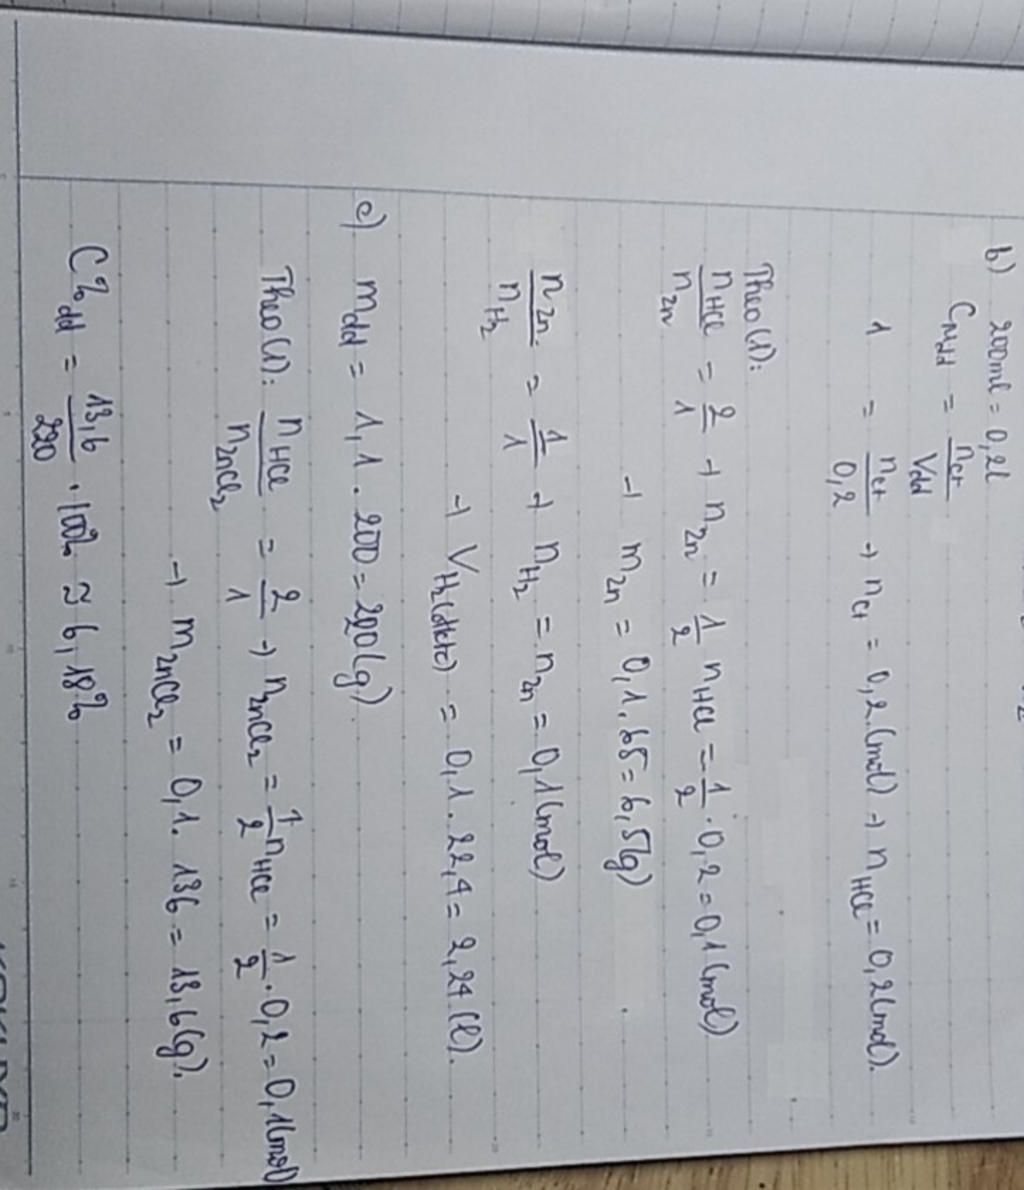 b) 200ml = 0,2l
C_Mdd = n_ct / V_dd
1 = n_ct / 0,2 → n_ct = 0,2 (mol) → n_HCl = 0,2 (mol).
Theo (1):
n_HCl / n_Zn = 2/1 → n_Zn = 1/2 n_HCl = 1/2 . 0,2 = 0,1 (mol)
→ m_Zn = 0,1 . 65 = 6,5 (g)
n_Zn / n_H₂ = 1/1 → n_H₂ = n_Zn = 0,1 (mol)
→ V_H₂(đktc) = 0,1 . 22,4 = 2,24 (l).
c) m_dd = 1,1 . 200 = 220 (g)
Theo (1): n_HCl / n_ZnCl₂ = 2/1 → n_ZnCl₂ = 1/2 n_HCl = 1/2 . 0,2 = 0,1 (mol)
→ m_ZnCl₂ = 0,1 . 136 = 13,6 (g).
C%_dd = 13,6 / 220 . 100% ≈ 6,18%